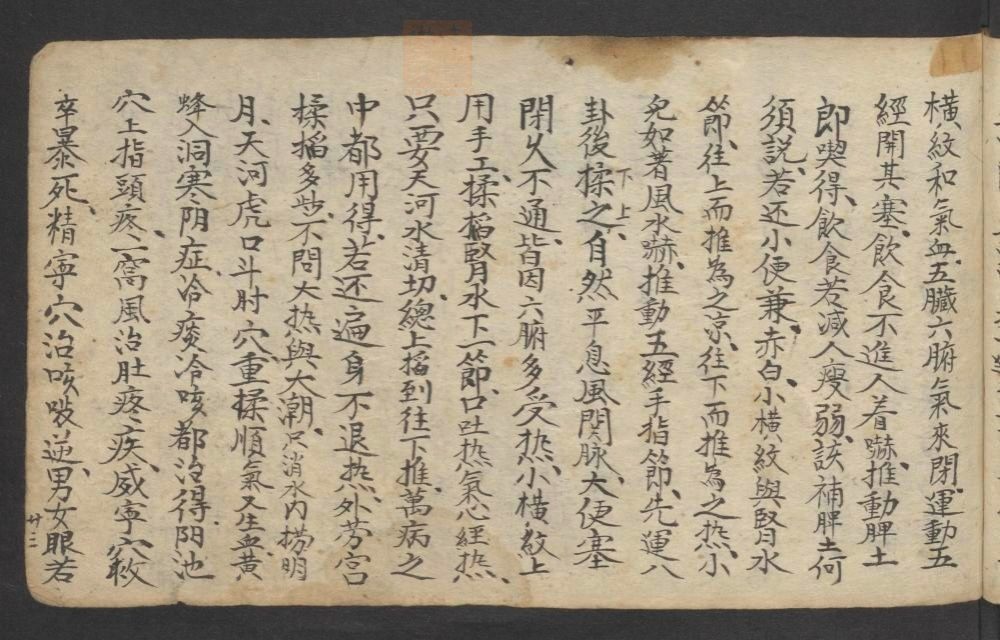 橫紋和氣血、五臟六腑氣來閉、運動五
經開其塞、飲食不進人着嚇、推動脾土
即喫得、飲食若減人瘦弱、該補脾土何
須說、若还小便兼赤白、小橫紋與腎水
節、往上而推為之凉、往下而推為之热、小
兒如著風水嚇、推動五經手指節、先運八
卦後揉之、自然平息風関脉、大便塞
下上
閉久不通、皆因六腑多受热、小橫紋上
用手工、揉搯腎水下一節、口吐热氣心經热、
只要天河水清切、總上搯到往下推、萬病之
中都用得、若还遍身不退热、外劳宫
揉搯多些、不問大热與大潮、只消水内捞明
月、天河虎口斗肘穴、重揉順氣又生血、黄
蜂入洞寒阴症、冷痰冷咳都治得、阴池
穴上指頭疼、一窩風治肚疼疾、威寧穴救
卒暴死、精寧穴治咳吱逆、男女眼若
廿三